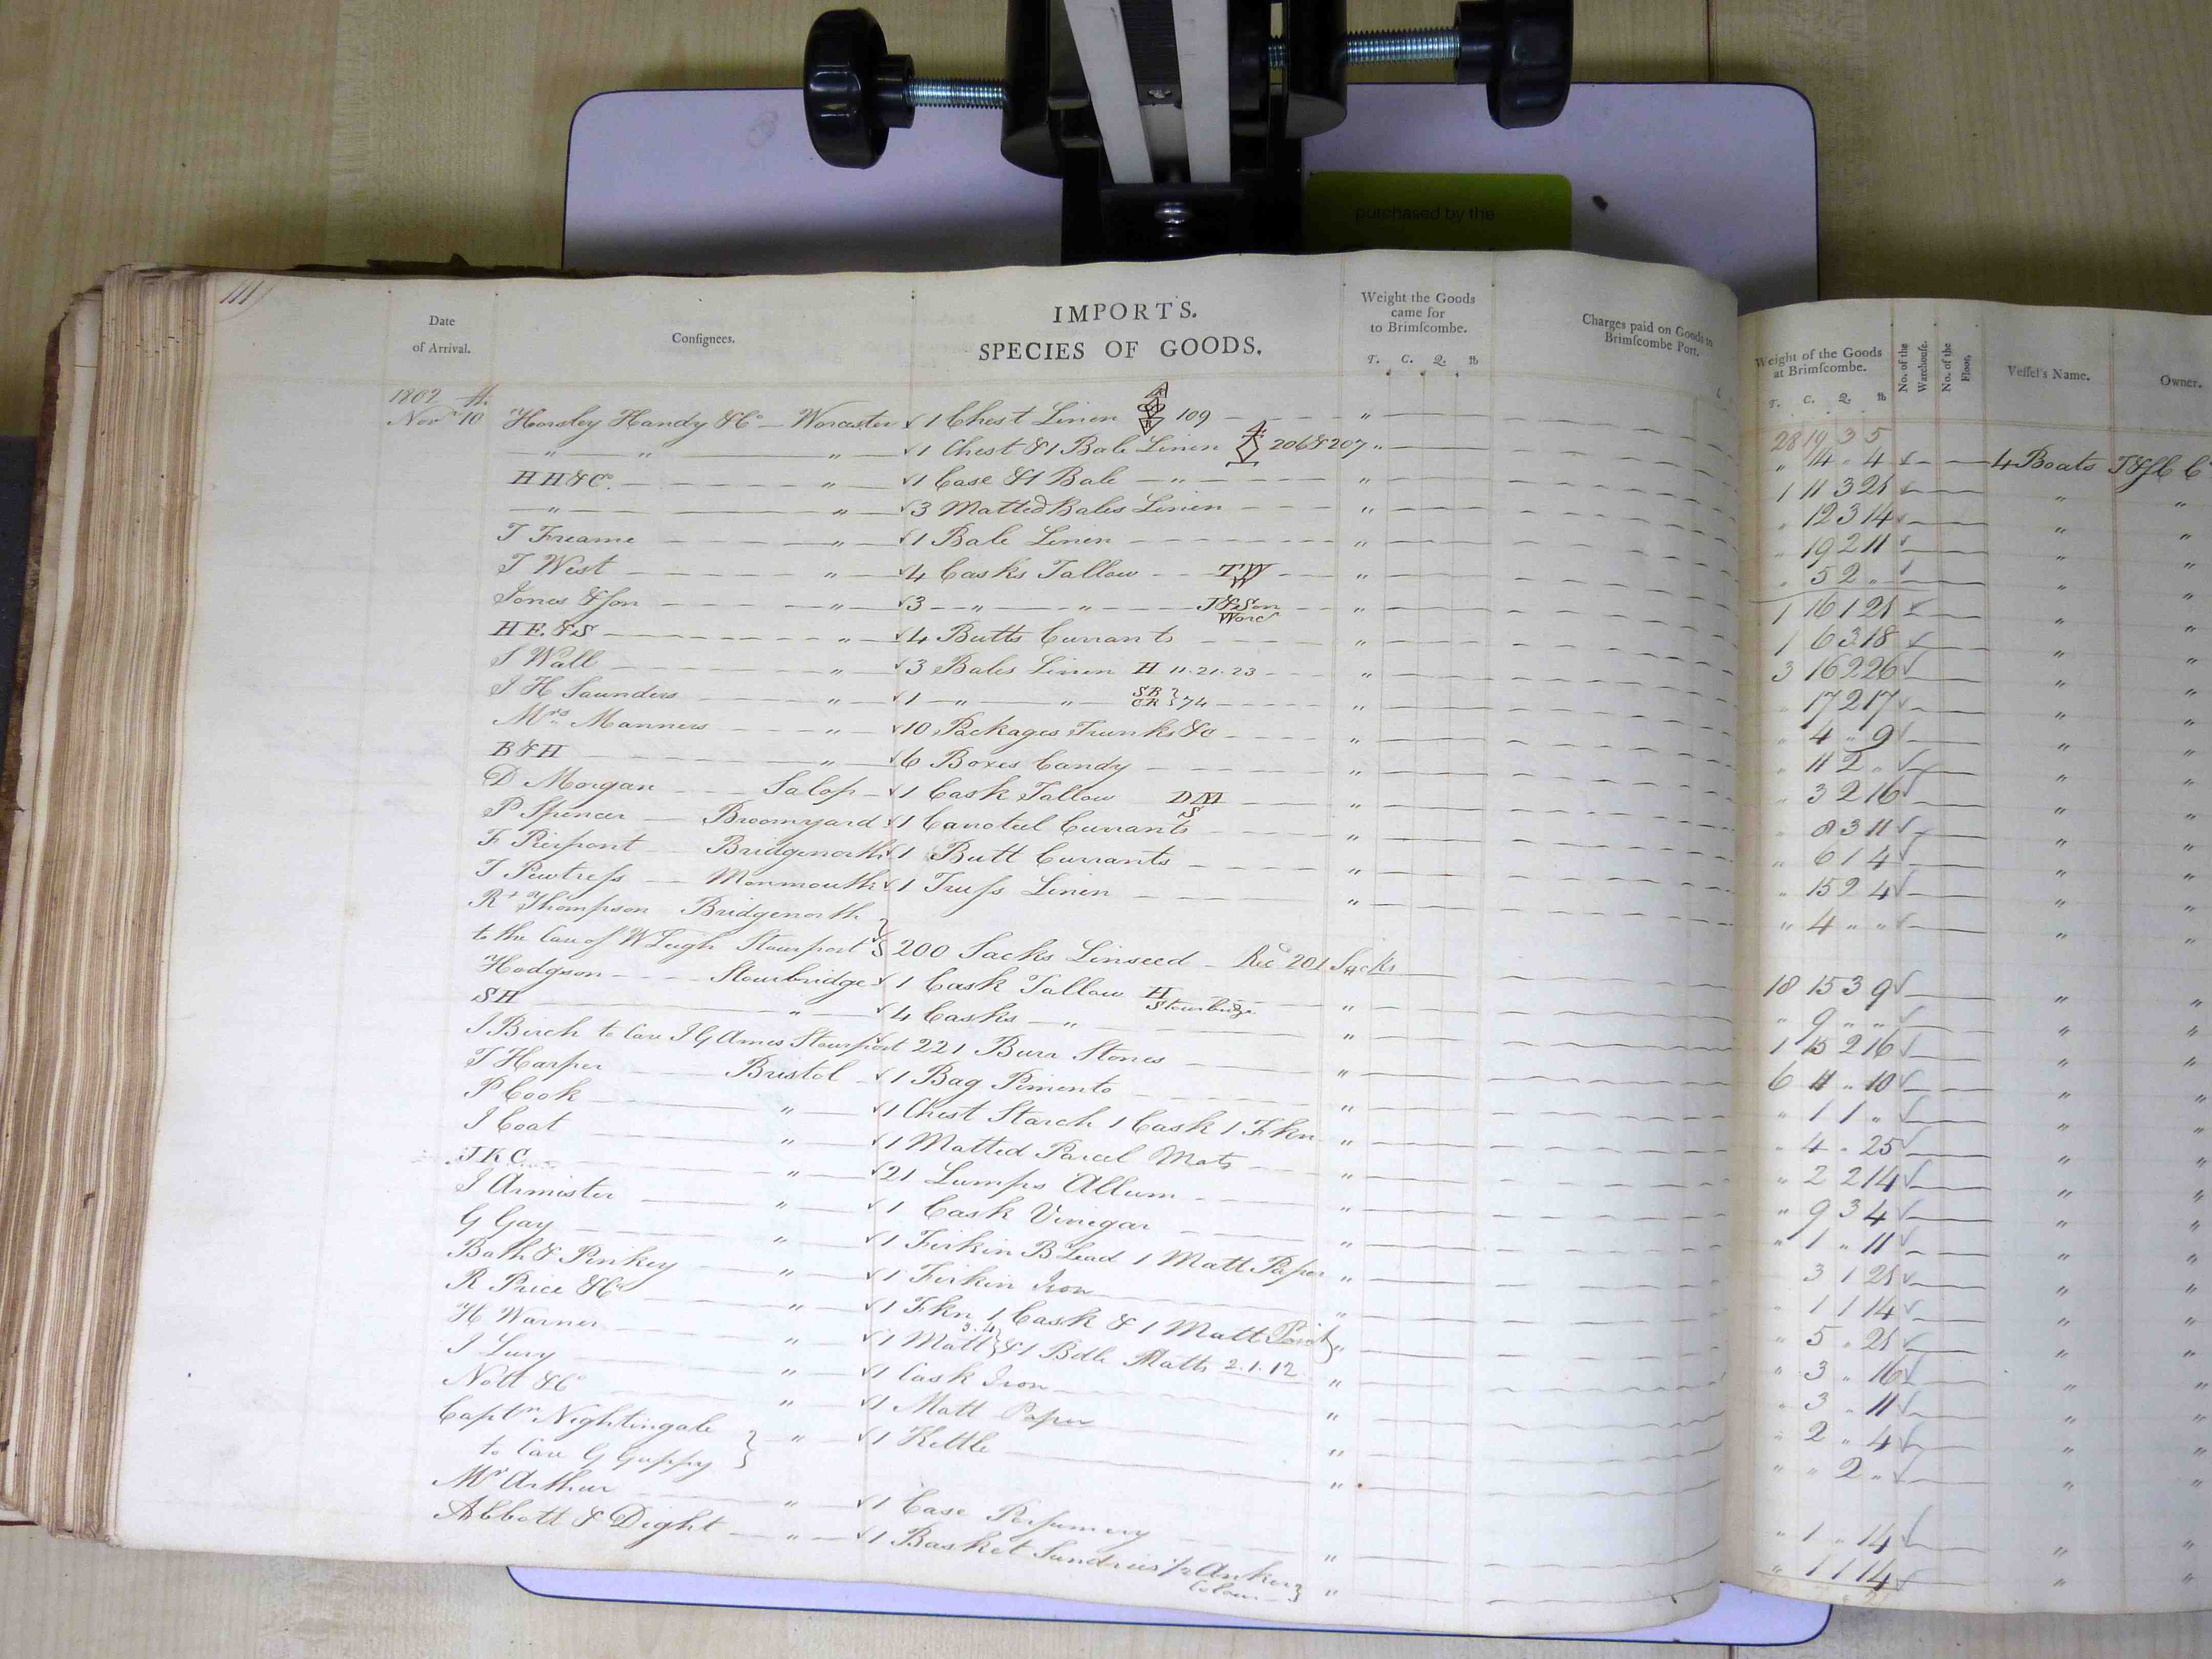 purchased by the
111
Date
of Arrival.
Consignees.
IMPORTS.
SPECIES OF GOODS.
Weight the Goods
came for
to Brimscombe.
T. C. Q. lb
Charges paid on Goods to
Brimscombe Port.
Weight of the Goods
at Brimscombe.
T. C. Q. lb
No. of the
Warehouse.
No. of the
Floor.
Vessel's Name.
Owner.
1802
28 19 3 5
Novr 10 Horsley Handy & Co — Worcester 1 Chest Linen 109 " 14 " 4 4 Boats
" " " 1 Chest & 1 Bale Linen 206 & 207 " 1 11 3 21
H H & Co. " 1 Case & 1 Bale " " 12 3 14
" " 3 Matted Bales Linen " 19 2 11
T Freame " 1 Bale Linen " 5 2 "
T West " 4 Casks Tallow TW W " 1 16 1 21
Jones & Son " 3 " " J & Son Worcr " 1 6 3 18
H E. & S " 4 Butts Currants " 3 16 2 26
S Wall " 3 Bales Linen H 11. 21. 23 " 17 2 17
J H Saunders " 1 " " SB CR } 74 " 4 " 9
Mrs Manners " 10 Packages Trunks &c " 11 2 "
B & H " 6 Boxes Candy " 3 2 16
D Morgan Salop 1 Cask Tallow DM S " 8 3 11
P Spencer Broomyard 1 Caroteel Currants " 6 1 4
F Pierpont Bridgenorth 1 Butt Currants " 15 2 4
T Pewtress Monmouth 1 Truss Linen " 4 " "
Rt Thompson Bridgenorth
to the Care of W Leigh Stourport } 200 Sacks Linseed Recd 201 Sacks 18 15 3 9
Hodgson Stourbridge 1 Cask Tallow H Stourbridge " 9 " "
SH " 4 Casks " " 1 15 2 16
J Birch to Care J G Ames Stourport 221 Burr Stones " 6 11 " 10
T Harper Bristol 1 Bag Pimento " 1 1 "
P Cook " 1 Chest Starch 1 Cask 1 Fkn " 4 " 25
J Coat " 1 Matted Parcel Mats " 2 2 14
J K C " 21 Lumps Allum " 9 3 4
J Armister " 1 Cask Vinegar " 1 " 11
G Gay " 1 Firkin B Lead 1 Matt Paper " 3 1 21
Bath & Pinkey " 1 Firkin Iron " 1 1 14
R Price & Co " 1 Fkn 1 Cask & 1 Matt Paint " 5 " 21
H Warner " 1 Matt & 1 Bdle Matts 2. 1. 12 " 3 " 16
J Lury " 1 Cask Iron " 3 " 11
Nott & Co " 1 Matt Paper " 2 " 4
Captn Nightingale
to Care G Guppy } " 1 Kettle " " 2 "
Mr Arthur " 1 Case Perfumery " 1 " 14
Abbott & Dight " 1 Basket Sundries 1/2 Anker " 1 1 14
Colour